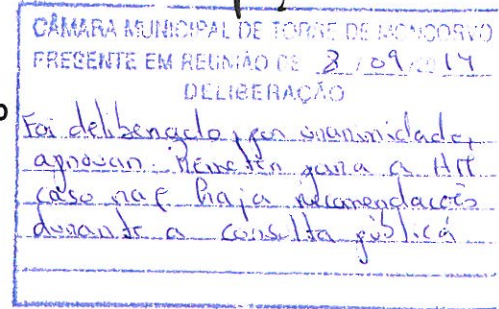 CÂMARA MUNICIPAL DE TORRE DE MONCORVO
PRESENTE EM REUNIÃO DE 8 / 09 / 2014
DELIBERAÇÃO
Foi deliberado, por unanimidade,
aprovar. Remeter para a AM
caso não haja recomendações
durante a consulta pública